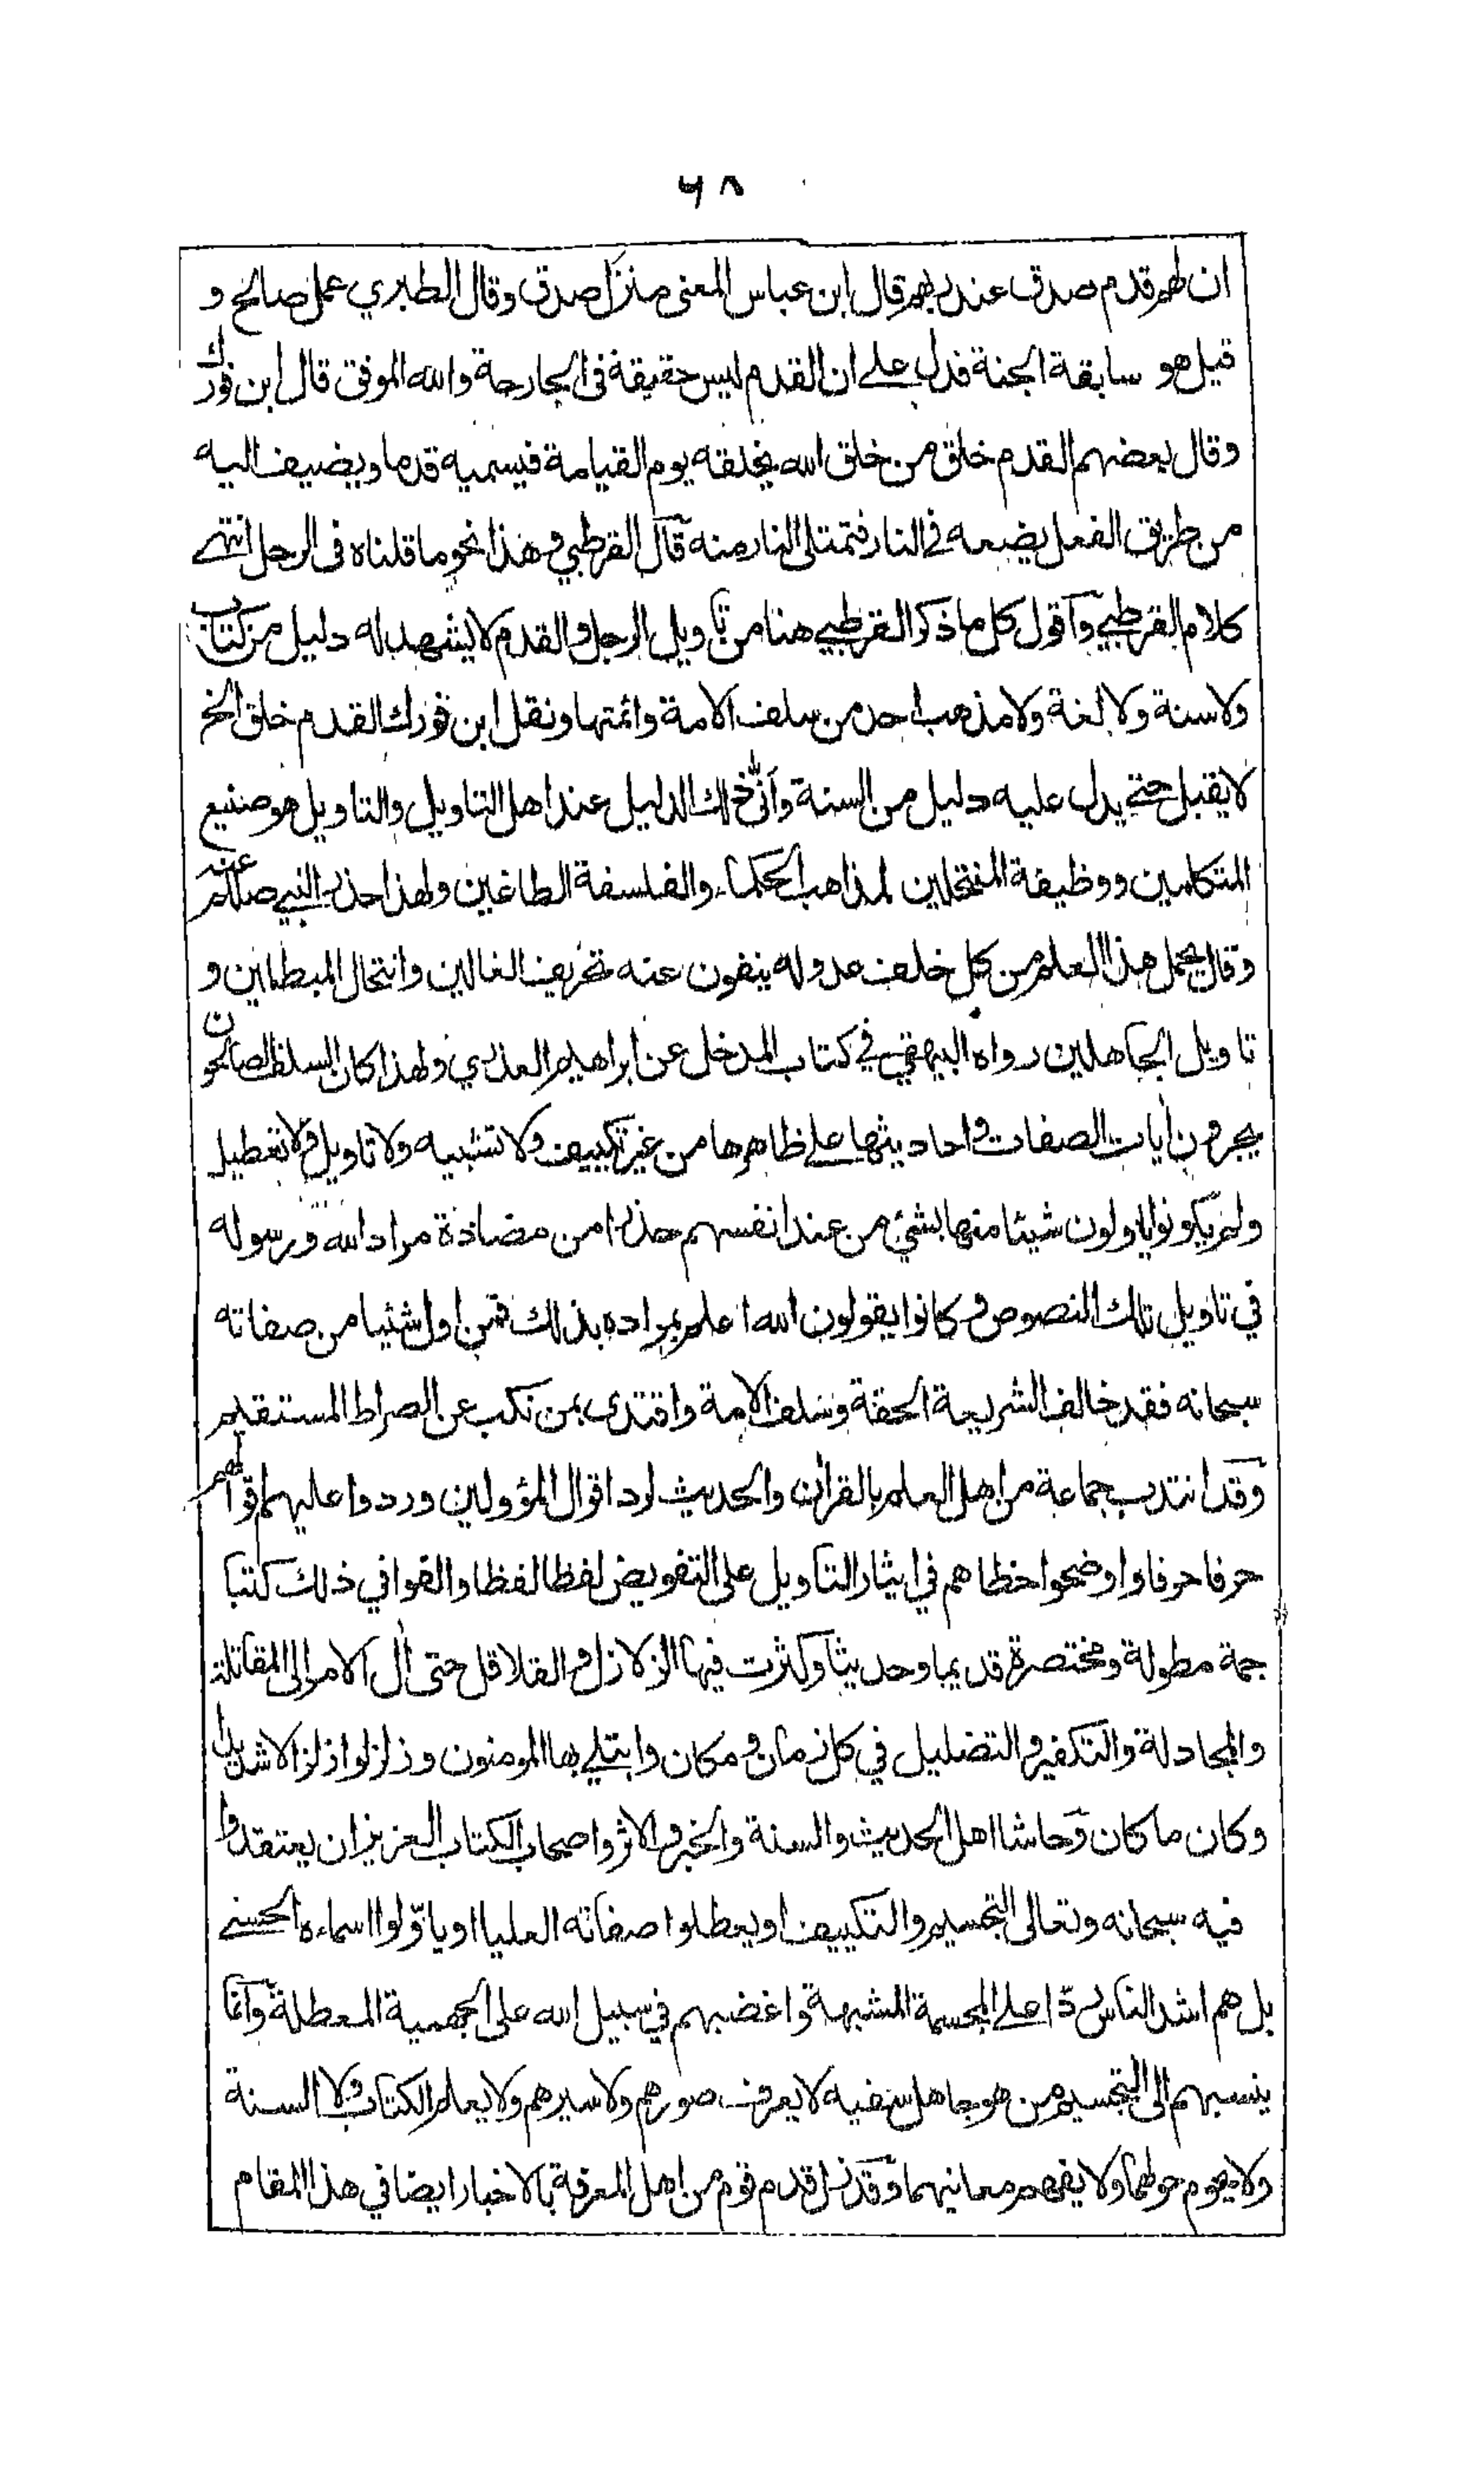 ٦٨
ان لهم قدم صدق عند ربهم قال ابن عباس المعنى منزل صدق وقال الطبري عمل صالح و
قيل هو سابقة الجنة فدل على ان القدم ليس حقيقة في الجارحة والله الموفق قال ابن فورك
وقال بعضهم القدم خلق من خلق الله يخلقه يوم القيامة فيسميه قدما ويضيف اليه
من طريق الفعل يضعه في النار فتمتلى النار منه قال القرطبي وهذا نحو ما قلناه في الرجل انتهى
كلام القرطبي وآقول كل ما ذكر القرطبي هنا من تأويل الرجل والقدم لا يشهد له دليل من كتاب
ولا سنة ولا لغة ولا مذهب احد من سلف الامة وائمتها ونقل ابن فورك القدم خلق الخ
لا يقبل حتى يدل عليه دليل من السنة وآنّى ذلك الدليل عند اهل التاويل والتاويل هو صنيع
المتكلمين ووظيفة المنتحلين لمذاهب الحكماء والفلسفة الطاغين ولهذا حذر النبي صللم عنه
وقال يحمل هذا العلم من كل خلف عدوله ينفون عنه تحريف الغالين وانتحال المبطلين و
تاويل الجاهلين رواه البيهقي في كتاب المدخل عن ابراهيم العذري ولهذا كان السلف الصالحون
يجرون أيات الصفات واحاديثها على ظاهرها من غير تكييف ولا تشبيه ولا تاويل ولا تعطيل
ولم يكونوا ياولون شيئا منها بشئ من عند انفسهم حذرا من مضادة مراد الله ورسوله
في تاويل تلك النصوص وكانوا يقولون الله اعلم بمراده بذلك فمن اول شئيا من صفاته
سبحانه فقد خالف الشريعة الحقة وسلف الامة واقتدى بمن نكب عن الصراط المستقيم
وقد انتدب جماعة من اهل العلم بالقرأن والحديث لرد اقوال المؤولين وردوا عليهم اقوالهم
حرفا حرفا واوضحوا خطاهم في ايثار التأويل على التفويض لفظا لفظا والفوا في ذلك كتبا
جمة مطولة ومختصرة قديما وحديثا وكثرت فيها الزلازل والقلاقل حتى أل الامر الى المقاتلة
والمجادلة والتكفير والتضليل في كل زمان ومكان وابتلي بها المومنون وزلزلوا زلزالا شديدا
وكان ما كان وحاشا اهل الحديث والسنة والخبر والاثر واصحاب الكتاب العزيز ان يعتقدوا
فيه سبحانه وتعالى التجسيم والتكييف او يعطلوا صفاته العليا او ياوّلوا اسماءه الحسنى
بل هم اشد الناس ردّا على المجسمة المشبهة واغضبهم في سبيل الله على الجهمية المعطلة وآنما
ينسبهم الى التجسيم من هو جاهل سفيه لا يعرف صورهم ولا سيرهم ولا يعلم الكتاب ولا السنة
ولا يحوم حولهما ولا يفهم معانيهما وقد زل قدم قوم من اهل المعرفة بالاخبار ايضا في هذا المقام